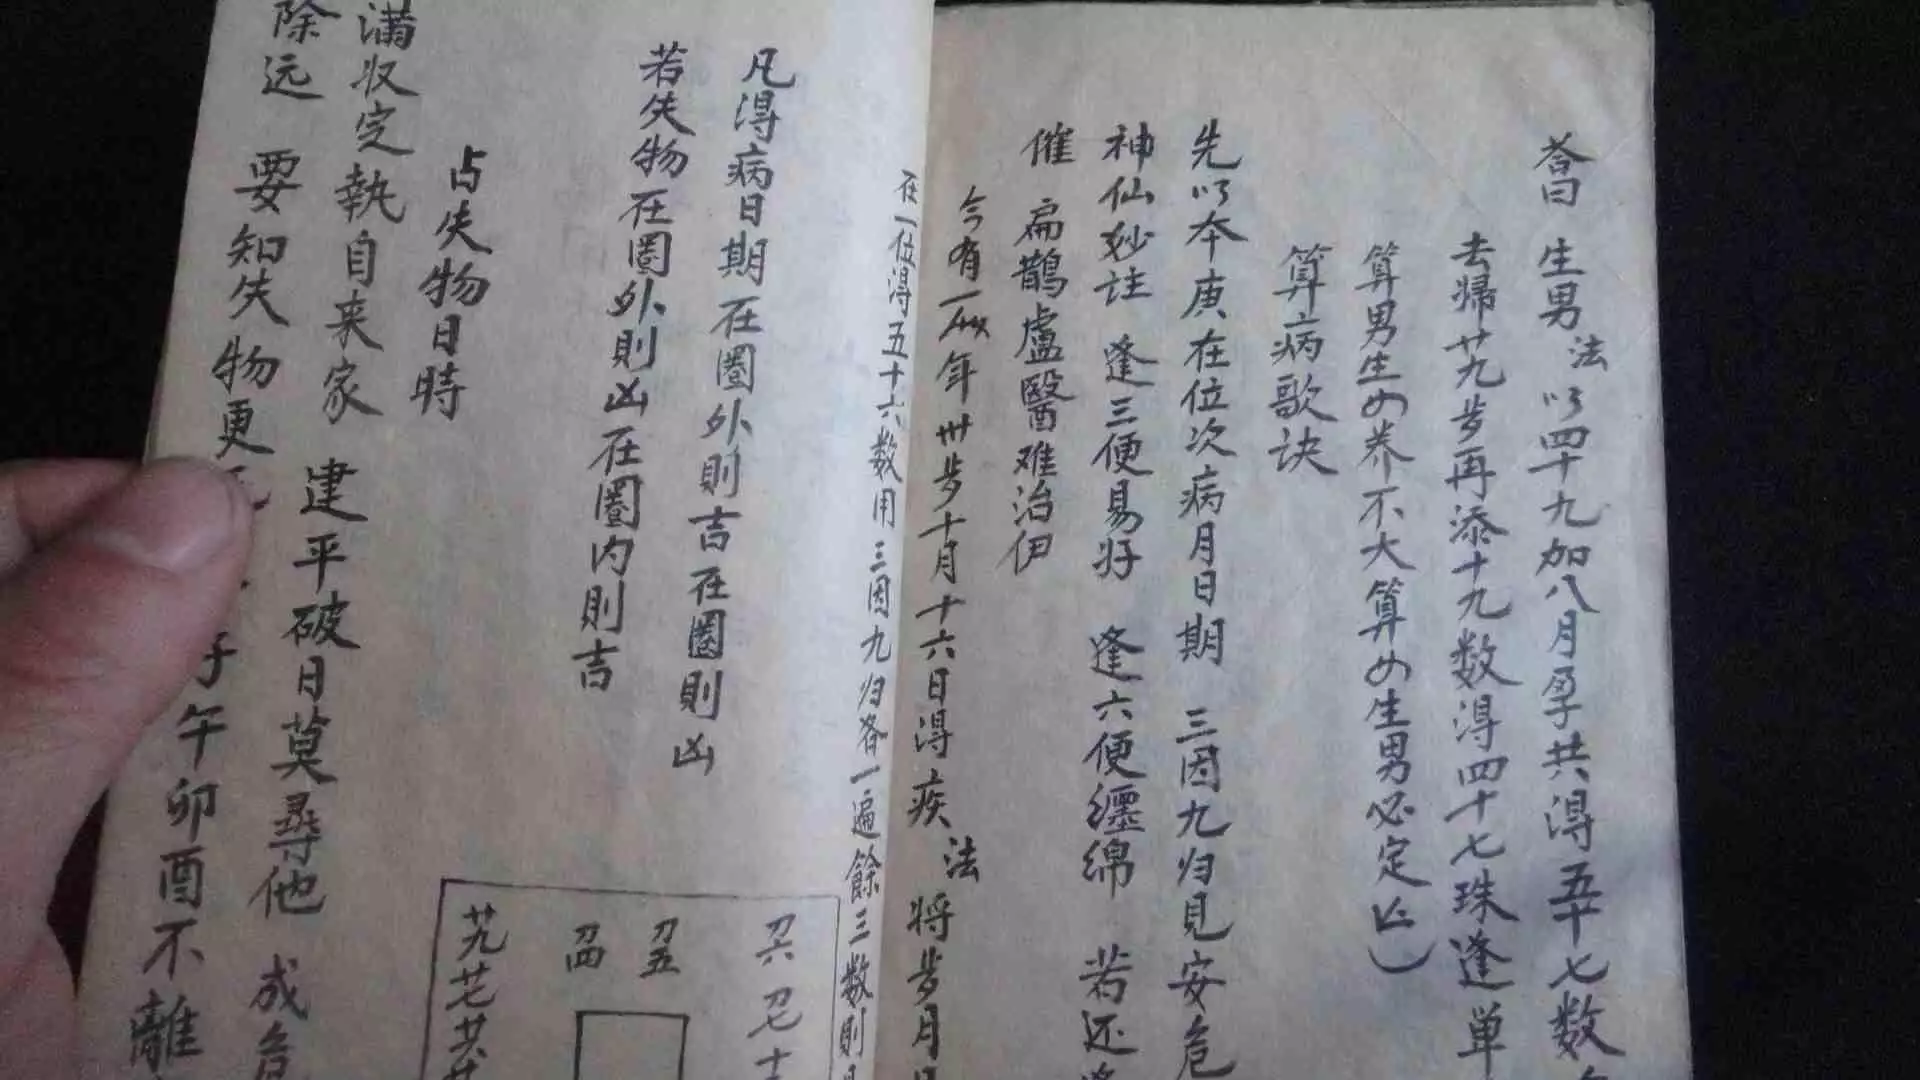 荅曰 生男 法 以四十九加八月孕共得五十七数
去歸廿九岁再添十九数得四十七珠逢单
算男生女养不大算女生男必定亡
算病歌诀
先以本庚在位次病月日期 三因九归見安危
神仙妙註 逢三便易好 逢六便纏绵 若还逢
催 扁鹊盧醫难治伊
今有一 年卅岁十月十六日得疾 法 将岁月日
在一位得五十六数用三因九归各一遍餘三数則
凡得病日期在圈外則吉在圈則凶
若失物在圈外則凶在圈内則吉
刀六 刀七 十
刀五
刀四
廿九 廿七 廿六
占失物日時
满收定執自来家 建平破日莫尋他 成危
除远 要知失物更 子午卯酉不離